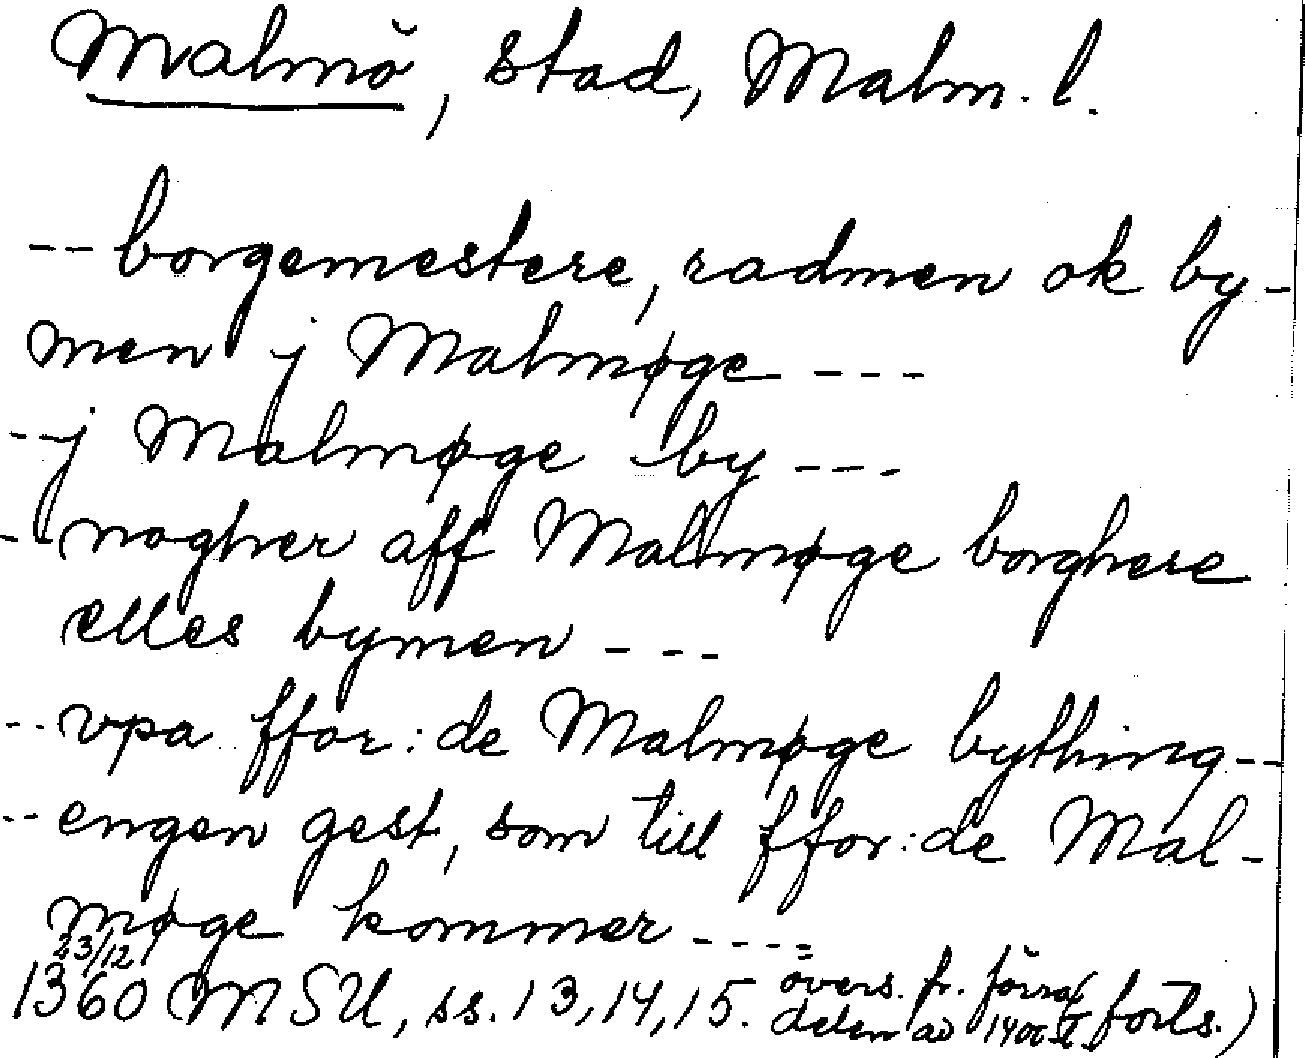 Malmö, stad, Malm. l.
-- borgemestere, radmen ok by-
men j Malmøge ---
-- j Malmøge by ---
- nogher aff Malmøge borghere
elles bymen ---
-- vpa ffor: de Malmøge bything --
-- engen gest, som till ffor: de Mal-
møge kommer ----
23/12
1360 MSU, ss. 13, 14, 15. övers. fr. förra forts.)
delen av 1400-t.